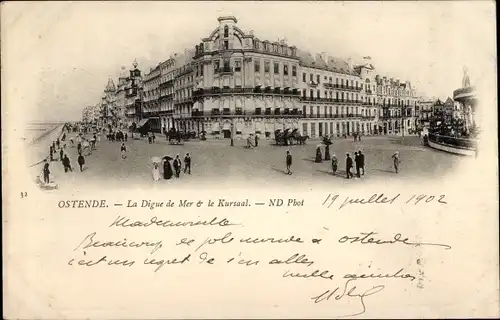 OSTENDE. — La Digue de Mer & le Kursaal. — ND Phot
12
19 juillet 1902
Mademoiselle
Beaucoup de joli monde à ostende
c'est un regret de s'en aller
mille amitiés